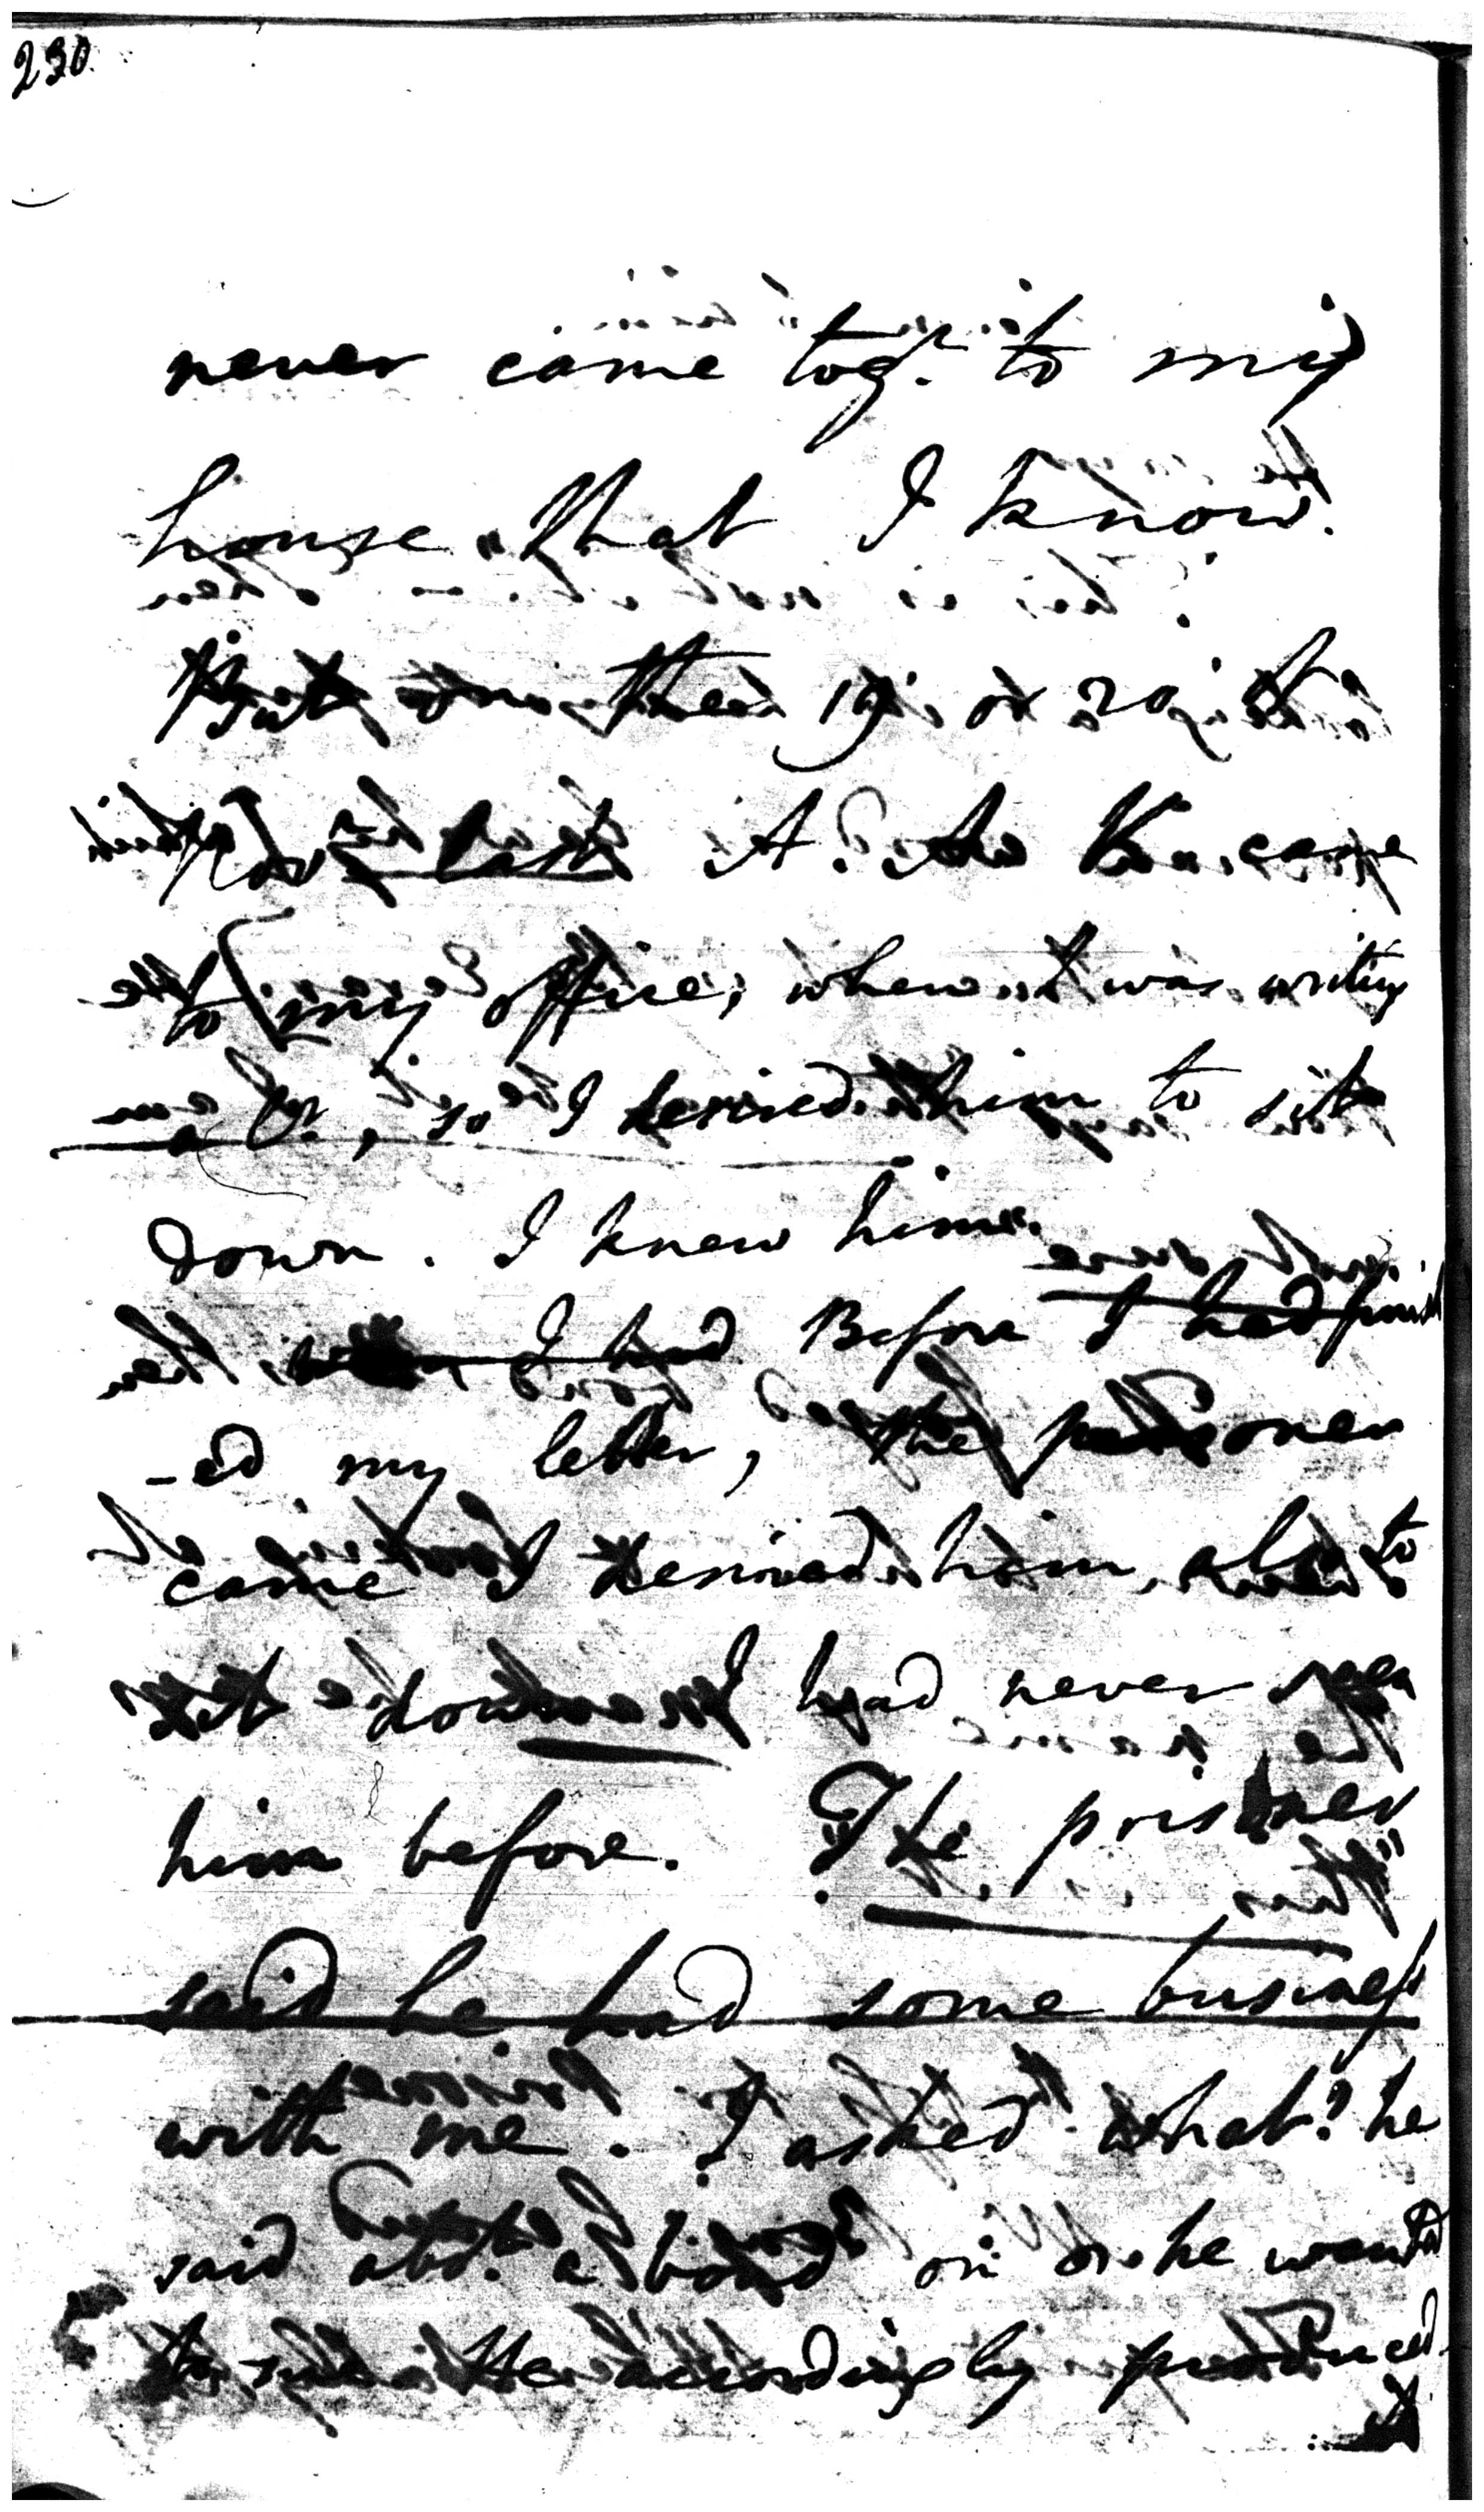 230
never came togr. to my
house that I know.
But on the 19 or 20 of
last A. Mc K. came
to my office, where I was writing
a Lr., so I desired him to sit
down. I knew him.
I had Before I had finish
-ed my letter, the prisoner
came I desired him also to
sit down I had never seen
him before. The prisoner
said he had some business
with me. I asked what? he
said abt. a bond on wh. he wanted
to sue He accordingly produced